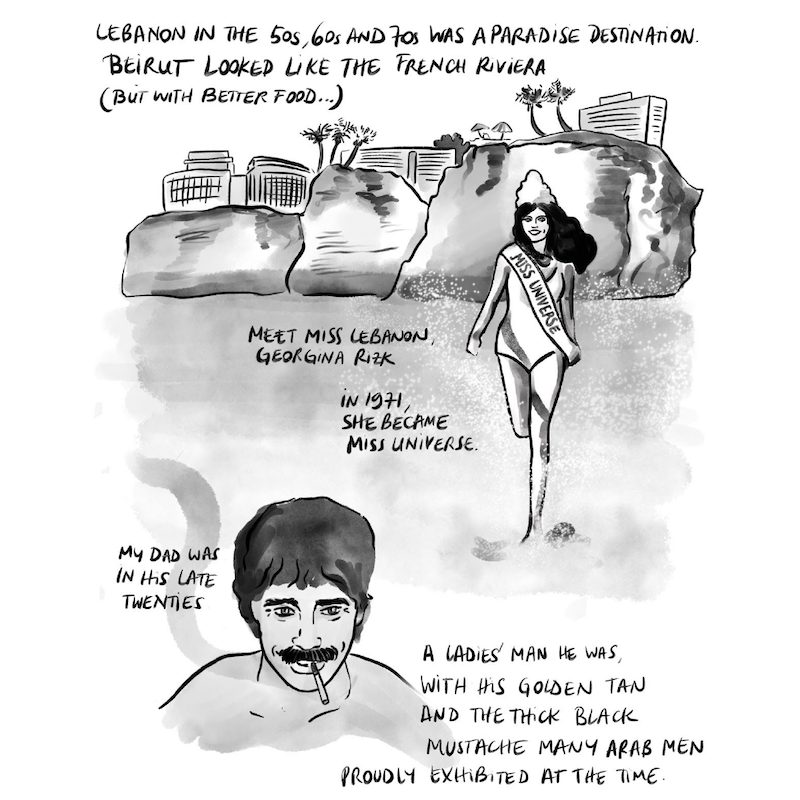 LEBANON IN THE 50s, 60s AND 70s WAS A PARADISE DESTINATION.
BEIRUT LOOKED LIKE THE FRENCH RIVIERA
(BUT WITH BETTER FOOD...)
MISS UNIVERSE
MEET MISS LEBANON,
GEORGINA RIZK
IN 1971,
SHE BECAME
MISS UNIVERSE.
MY DAD WAS
IN HIS LATE
TWENTIES
A LADIES' MAN HE WAS,
WITH HIS GOLDEN TAN
AND THE THICK BLACK
MUSTACHE MANY ARAB MEN
PROUDLY EXHIBITED AT THE TIME.